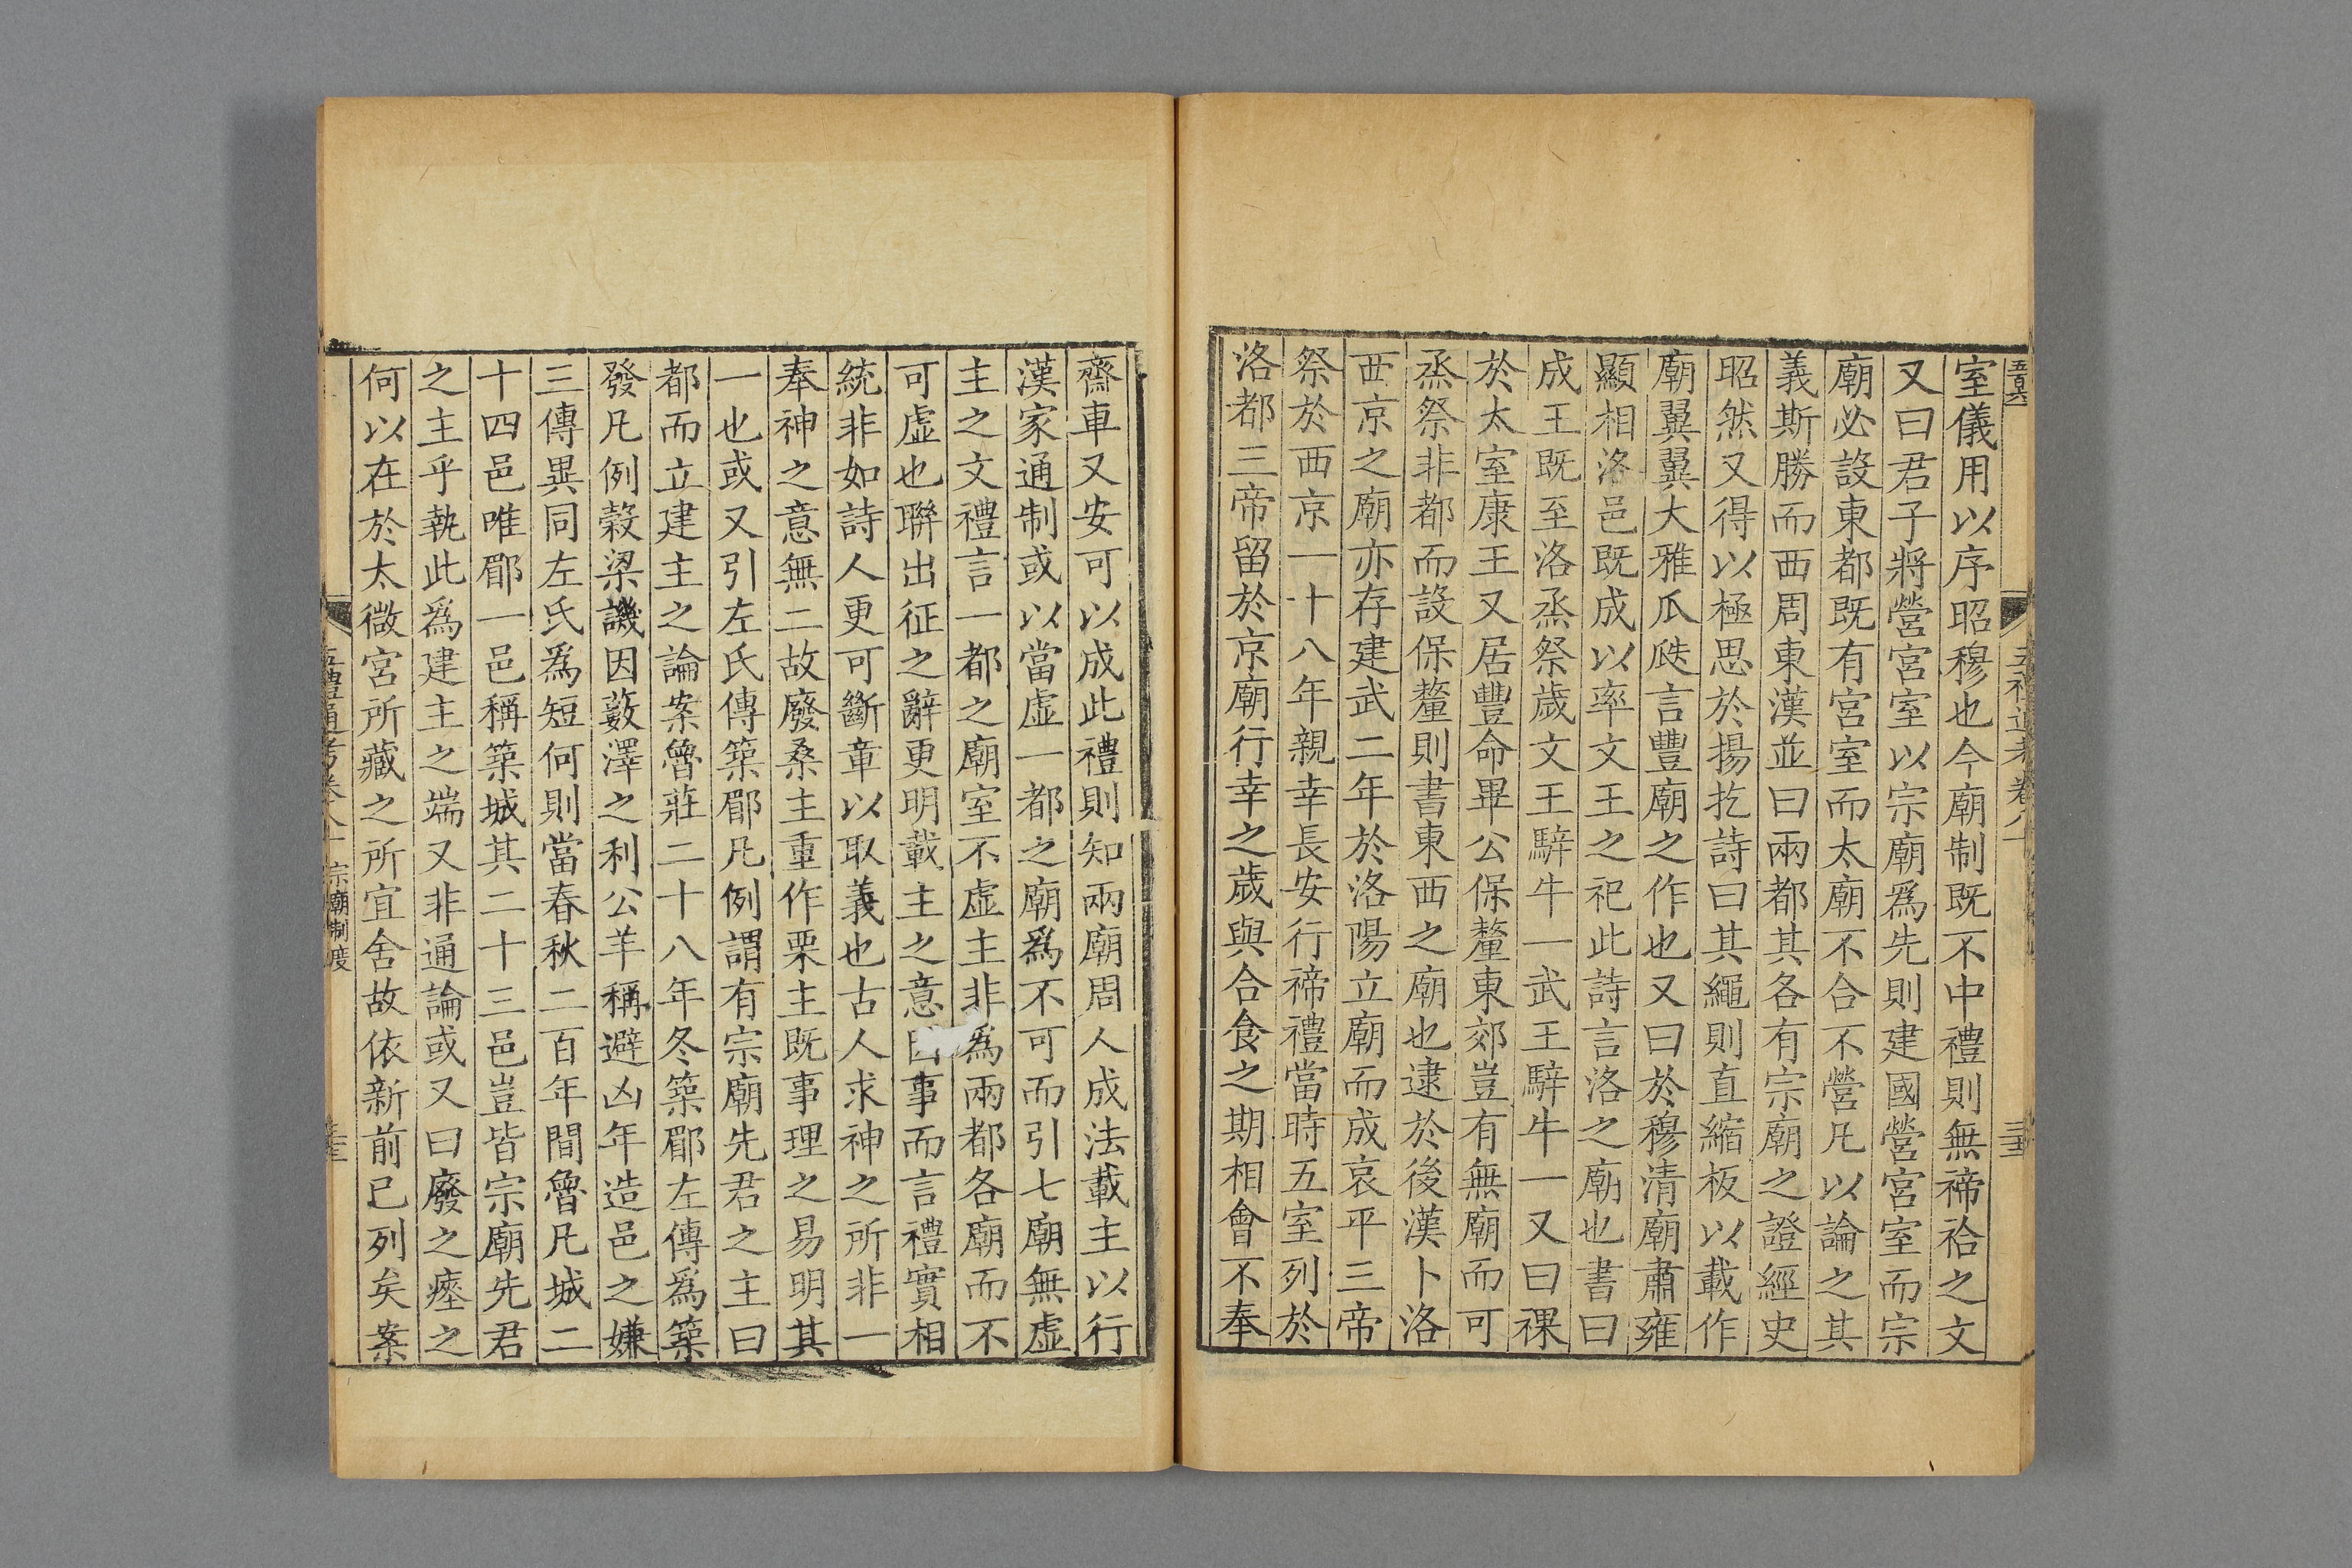 室儀用以序昭穆也今廟制既不中禮則無禘祫之文
又曰君子將營宮室以宗廟爲先則建國營宮室而宗
廟必設東都既有宮室而太廟不合不營凡以論之其
義斯勝而西周東漢並曰兩都其各有宗廟之證經史
昭然又得以極思於揚扢詩曰其繩則直縮板以載作
廟翼翼大雅瓜瓞言豐廟之作也又曰於穆清廟肅雍
顯相洛邑既成以率文王之祀此詩言洛之廟也書曰
成王既至洛烝祭歲文王騂牛一武王騂牛一又曰祼
於太室康王又居豐命畢公保釐東郊豈有無廟而可
烝祭非都而設保釐則書東西之廟也逮於後漢卜洛
西京之廟亦存建武二年於洛陽立廟而成哀平三帝
祭於西京一十八年親幸長安行禘禮當時五室列於
洛都三帝留於京廟行幸之歲與合食之期相會不奉
齋車又安可以成此禮則知兩廟周人成法載主以行
漢家通制或以當虛一都之廟爲不可而引七廟無虛
主之文禮言一都之廟室不虛主非爲兩都各廟而不
可虛也聯出征之辭更明載主之意因事而言禮實相
統非如詩人更可斷章以取義也古人求神之所非一
奉神之意無二故廢桑主重作栗主既事理之易明其
一也或又引左氏傳築郿凡例謂有宗廟先君之主曰
都而立建主之論案魯莊二十八年冬築郿左傳爲築
發凡例穀梁譏因藪澤之利公羊稱避凶年造邑之嫌
三傳異同左氏爲短何則當春秋二百年間魯凡城二
十四邑唯郿一邑稱築城其二十三邑豈皆宗廟先君
之主乎執此爲建主之端又非通論或又曰廢之瘞之
何以在於太微宮所藏之所宜舍故依新前已列矣案
五禮通考卷八十 宗廟制度